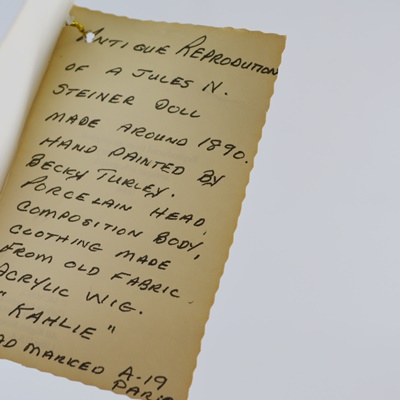 ANTIQUE REPRODUTION
OF A JULES N.
STEINER DOLL
MADE AROUND 1890.
HAND PAINTED BY
BECKY TURLEY.
PORCELAIN HEAD,
COMPOSITION BODY,
CLOTHING MADE
FROM OLD FABRIC.
ACRYLIC WIG.
"KAHLIE"
MARKED A-19